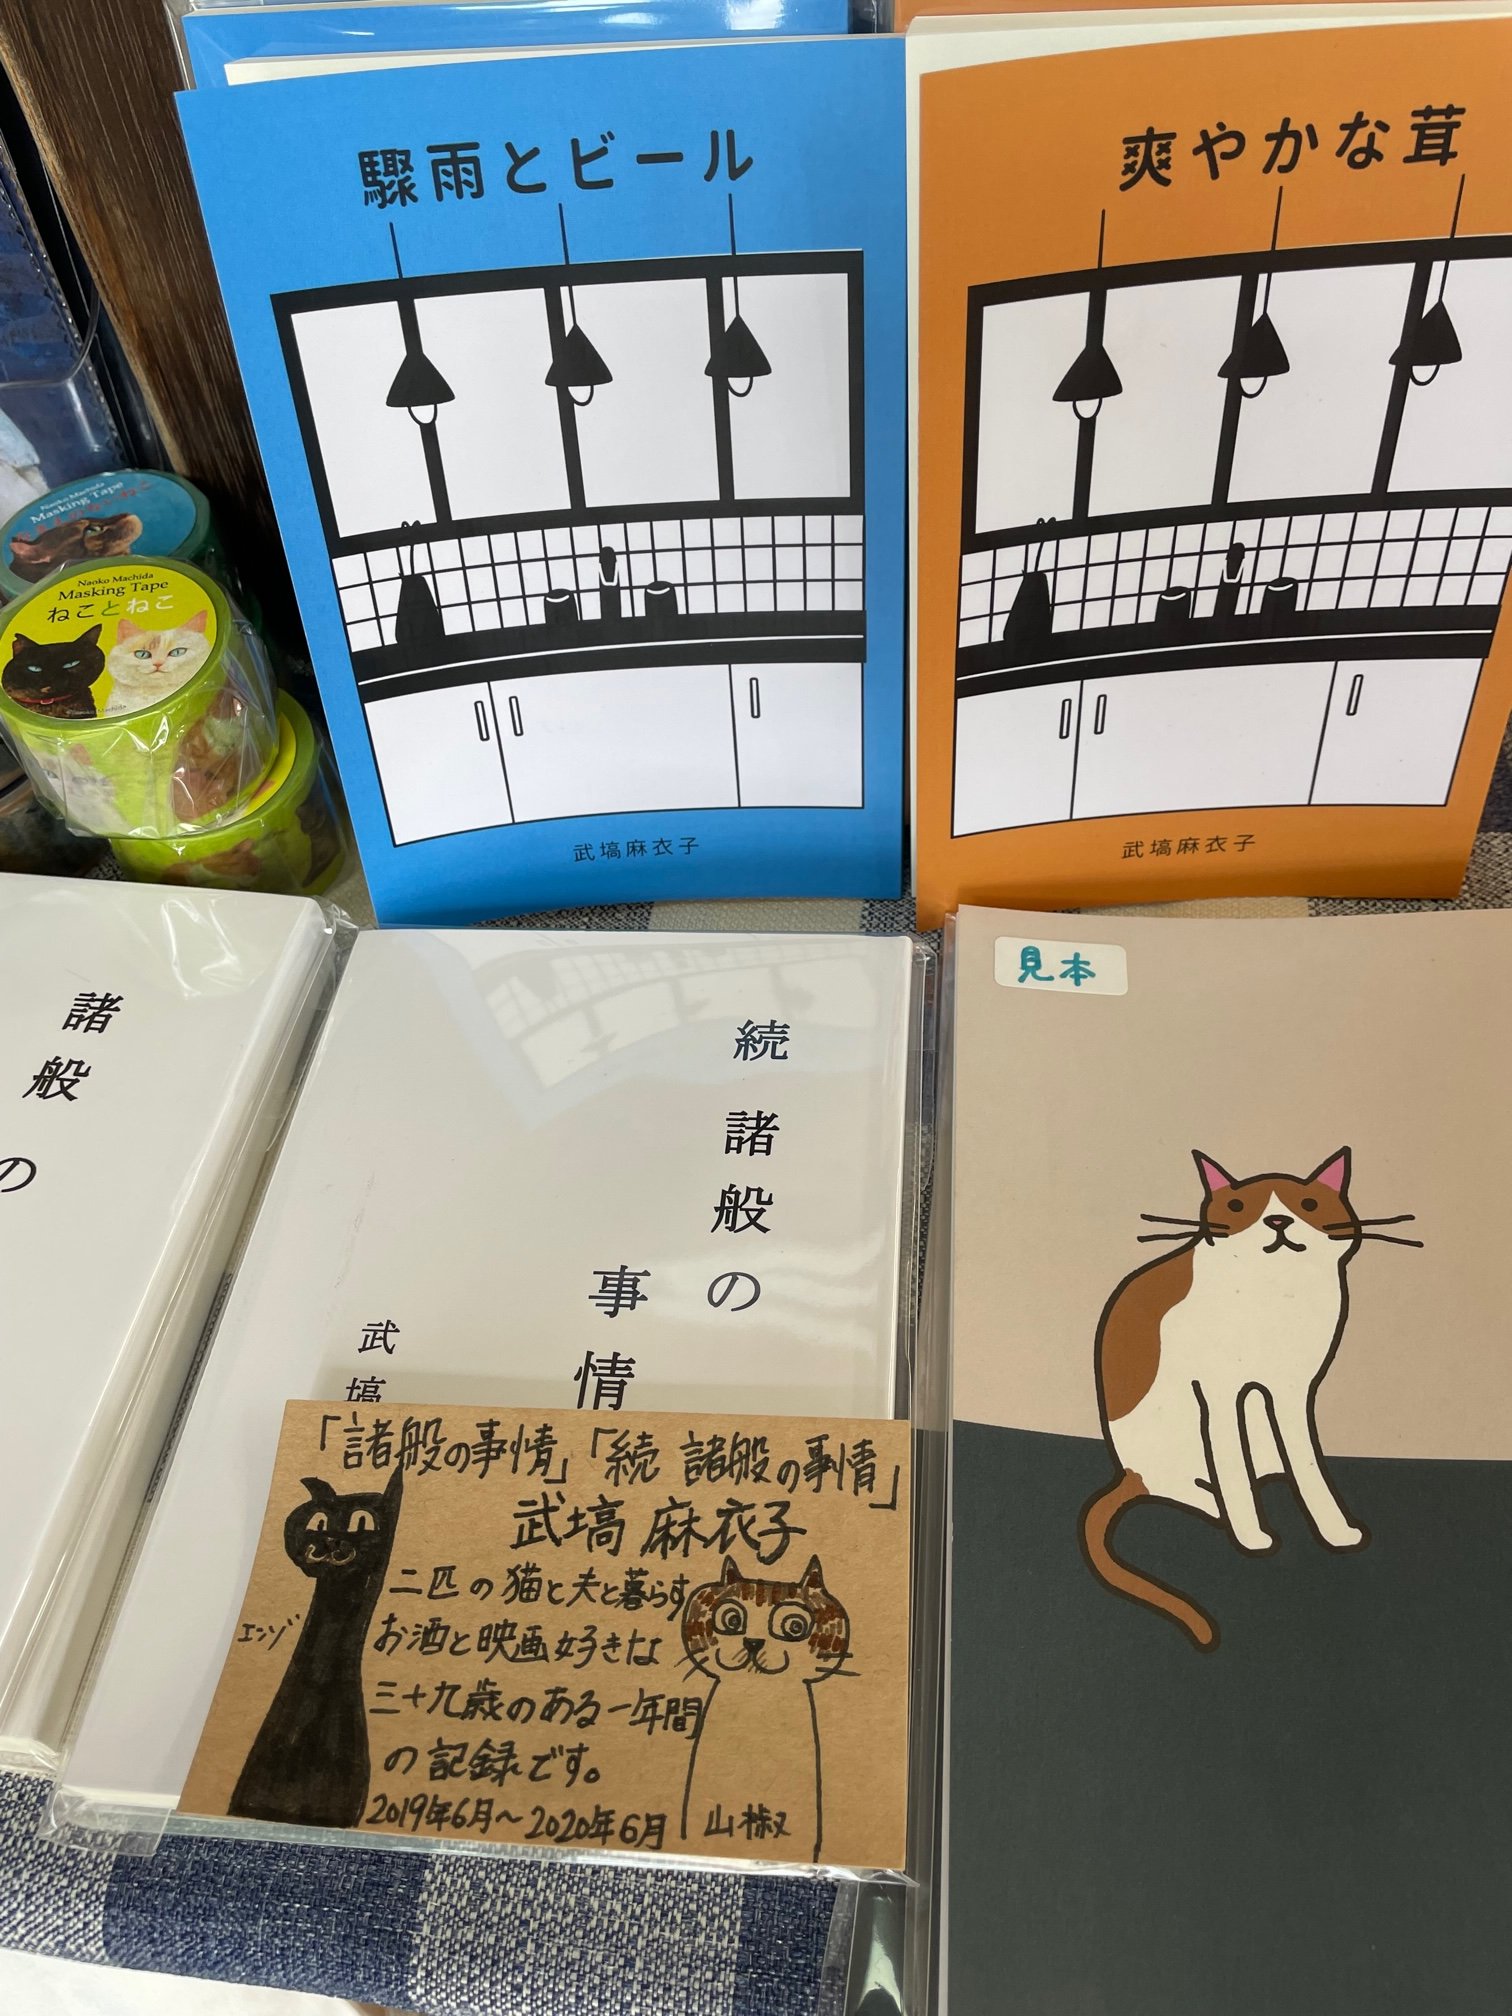 驟雨とビール
武塙麻衣子
爽やかな茸
武塙麻衣子
Naoko Machida
Masking Tape
Naoko Machida
Masking Tape
ねことねこ
諸般の
続 諸般の
事情
武塙
見本
「諸般の事情」「続 諸般の事情」
武塙 麻衣子
二匹の猫と夫と暮らす
お酒と映画好きな
三十九歳のある一年間
の記録です。
2019年6月～2020年6月
エンゾ
山椒